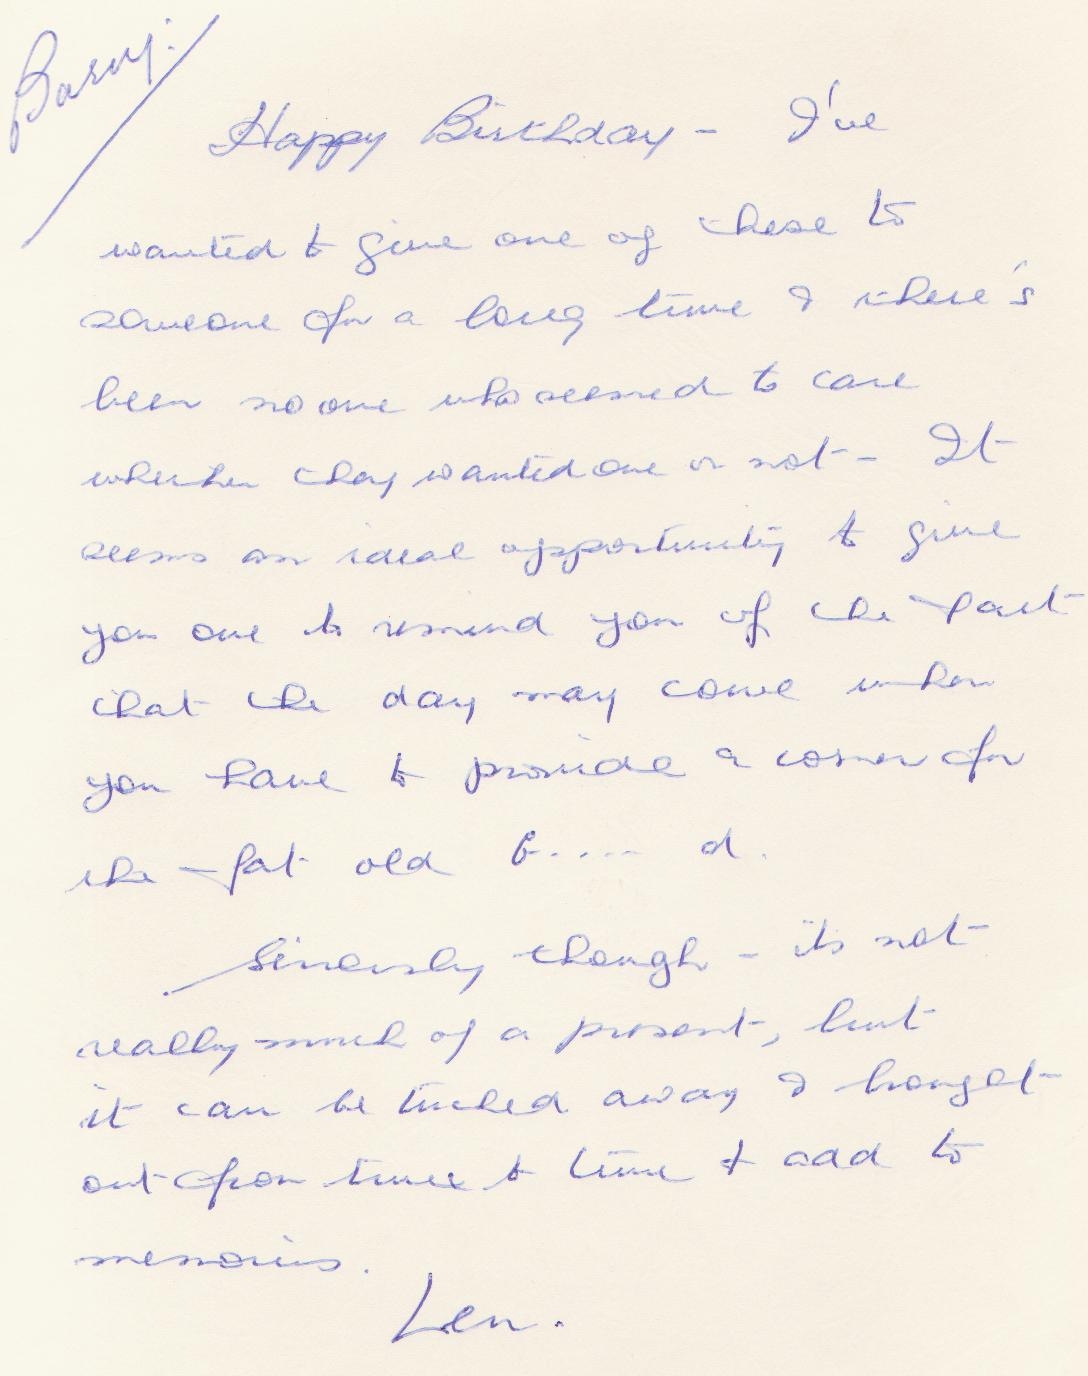 Barry.
Happy Birthday - I've
wanted to give one of these to
someone for a long time & there's
been no one who seemed to care
whether they wanted one or not - It
seems an ideal opportunity to give
you one to remind you of the fact
that the day may come when
you have to provide a corner for
the fat old b..... d.
Sincerely though - its not
really much of a present, but
it can be tucked away & brought
out from time to time & add to
memories.
Len.